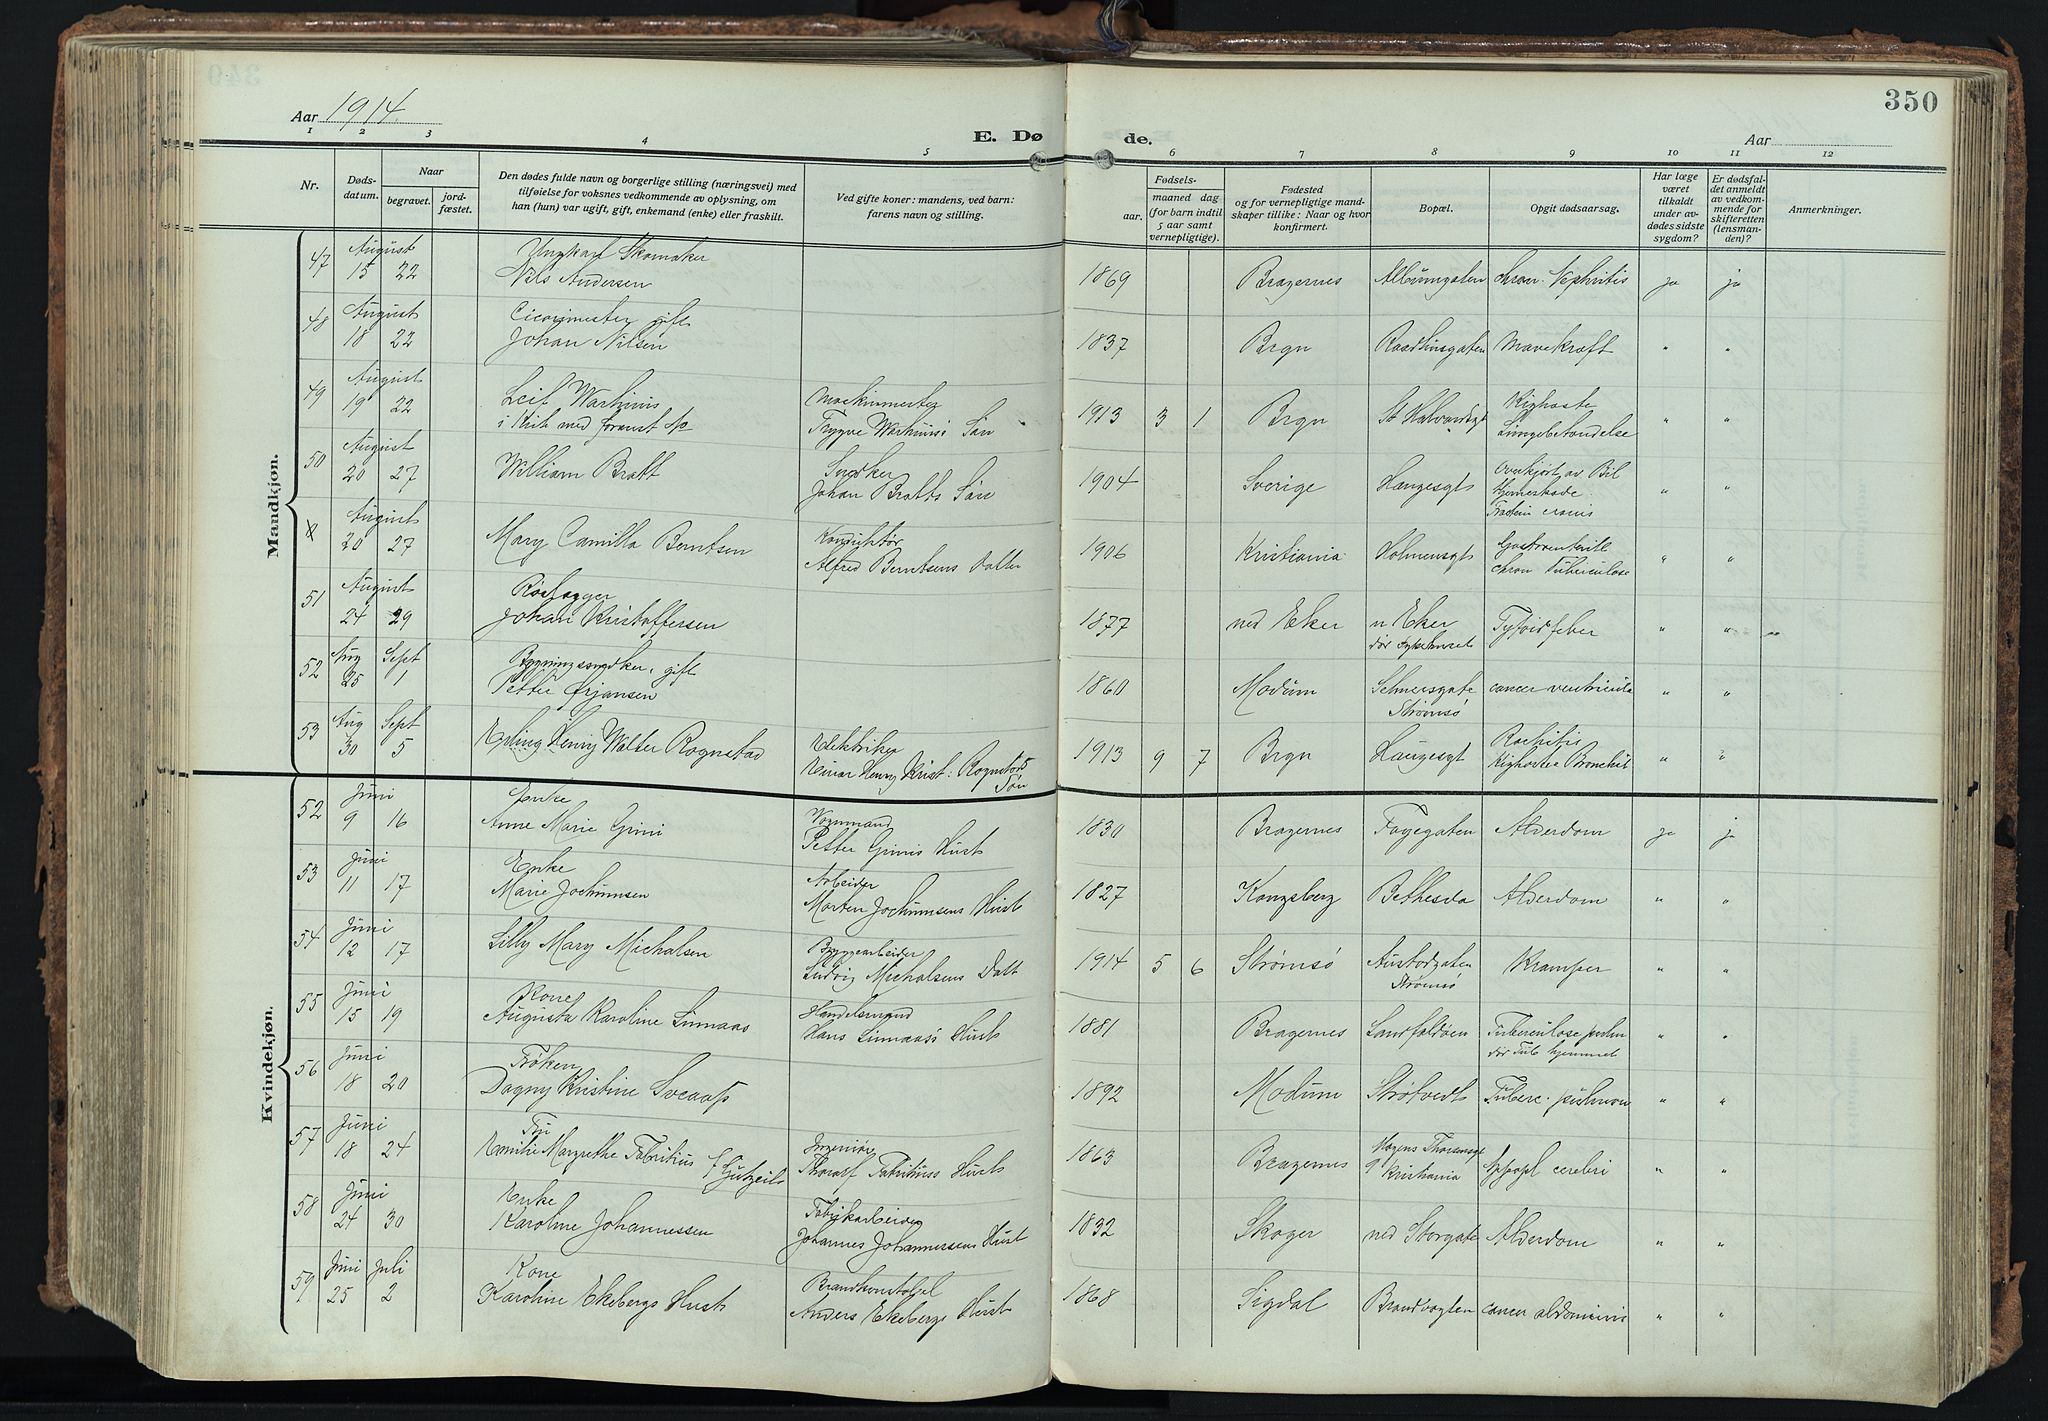 350
Aar 1914.
E. Dø
de.
Aar
1 2 3 4 5 6 7 8 9 10 11 12
Nr.
Døds-
datum.
Naar
begravet.
jord-
fæstet.
Den dødes fulde navn og borgerlige stilling (næringsvei) med
tilføielse for voksnes vedkommende av oplysning, om
han (hun) var ugift, gift, enkemand (enke) eller fraskilt.
Ved gifte koner: mandens, ved barn:
farens navn og stilling.
Fødsels-
aar. maaned dag
(for barn indtil
5 aar samt
vernepligtige).
Fødested
og for vernepligtige mand-
skaper tillike: Naar og hvor
konfirmert.
Bopæl.
Opgit dødsaarsag.
Har læge
været
tilkaldt
under av-
dødes sidste
sygdom?
Er dødsfal-
det anmeldt
av vedkom-
mende for
skifteretten
(lensman-
den)?
Anmerkninger.
Mandkjøn.
47 August Ungkarl Skomaker
15 22 Nils Andersen 1869 Bragernes chron. Nephritis ja ja
48 August gift
18 22 Johan Nilsen 1837 Brgn Mavekræft " "
49 August Leif Warhuus Maskinmester Kighoste
19 22 Trygve Warhuus' Søn 1913 3 1 Brgn St Halvardsgt Lungebetændelse " "
50 August Snedker Overkjørt av Bil
20 27 William Bratt Johan Bratts Søn 1904 Sverige Haugesgt " "
August Konduktør
20 27 Mary Camilla Berntsen Alfred Berntsens Datter 1906 Kristiania Holmensgt chron Tuberculose " "
51 August
24 29 Johan Kristoffersen 1877 ned Eker n Eker Tyfoidfeber " "
52 Aug Sept gift
25 1 Petter Ørjansen 1860 Modum Strømsø " "
53 Aug Sept Elektriker Rachitis
30 5 Erling Henry Walter Rognstad Einar Henry Krist: Rognstads Søn 1913 9 7 Brgn Haugesgt Kighoste Bronchit " "
Kvindekjøn.
52 Juni Enke Vognmand
9 16 Anne Marie Grini Petter Grinis Hust 1830 Bragernes Alderdom ja j
53 Juni Enke Arbeider
11 17 Marie Jochumsen Morten Jochumsens Hust 1827 Kongsberg Bethesda Alderdom " "
54 Juni Bryggearbeider
12 17 Lilly Mary Michalsen Ludvig Michalsens Datt 1914 5 6 Strømsø Strømsø Kramper " "
55 Juni Kone Handelsmand
15 19 Augusta Karoline Linnaas Hans Linnaas's Hust 1881 Bragernes Tuberculose pulm " "
dør Tub hjemmet
56 Juni Frøken
18 20 Dagny Kristine Sveaas 1892 Modum Tuberc. pulmon " "
57 Juni Fru Ingeniør
18 24 Emilie Margrethe Fabritius f Gutzeit Thoralf Fabritius's Hust 1863 Bragernes Kristiania cerebri " "
58 Juni Enke Fabrikarbeider
24 30 Karoline Johannessen Johannes Johannessens Hust 1832 Skoger ned Storgate Alderdom " "
59 Juni Juli Kone Brandkonstabel
25 2 Karoline Ekebergs Hust Anders Ekebergs Hust 1868 Sigdal Brandvagten cancer abdominis " "